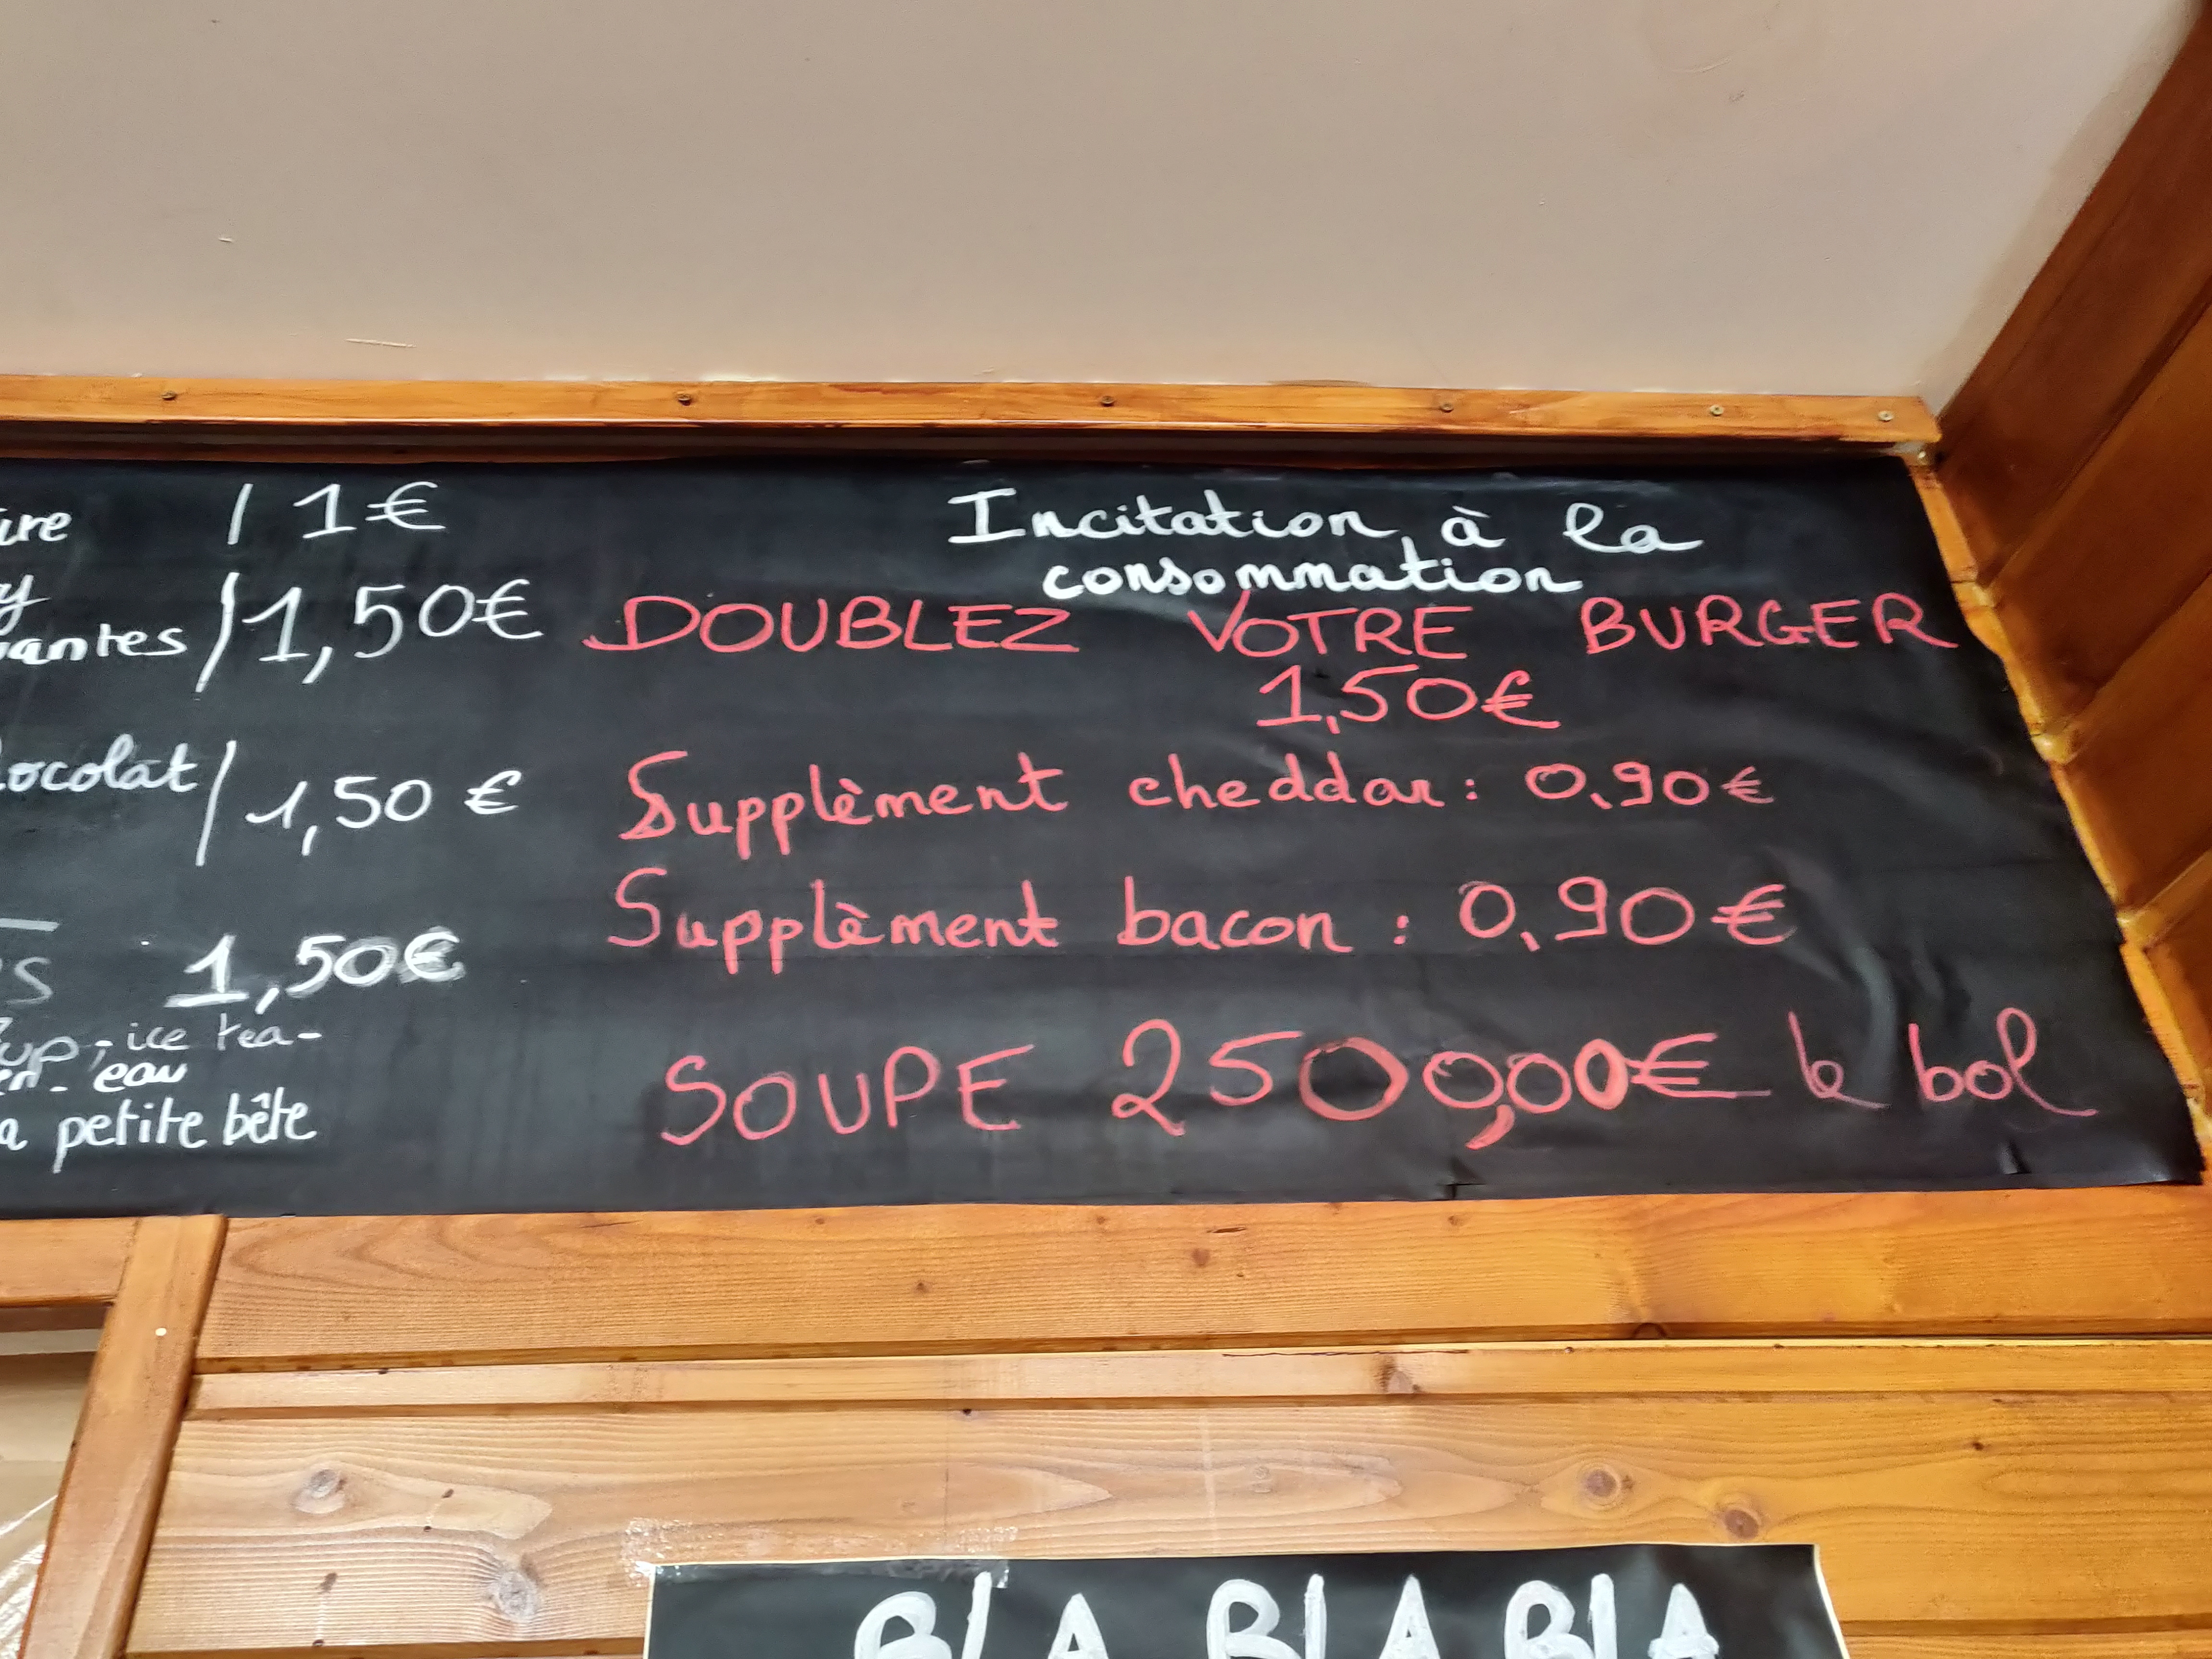 ure / 1€
y
antes / 1,50€
ocolat / 1,50 €
s 1,50€
up - ice tea -
en - eau
a petite bête
Incitation à la
consommation
DOUBLEZ VOTRE BURGER
1,50€
Supplèment cheddar : 0,90€
Supplèment bacon : 0,90€
SOUPE 2500,00€ le bol
BLA BLA BLA